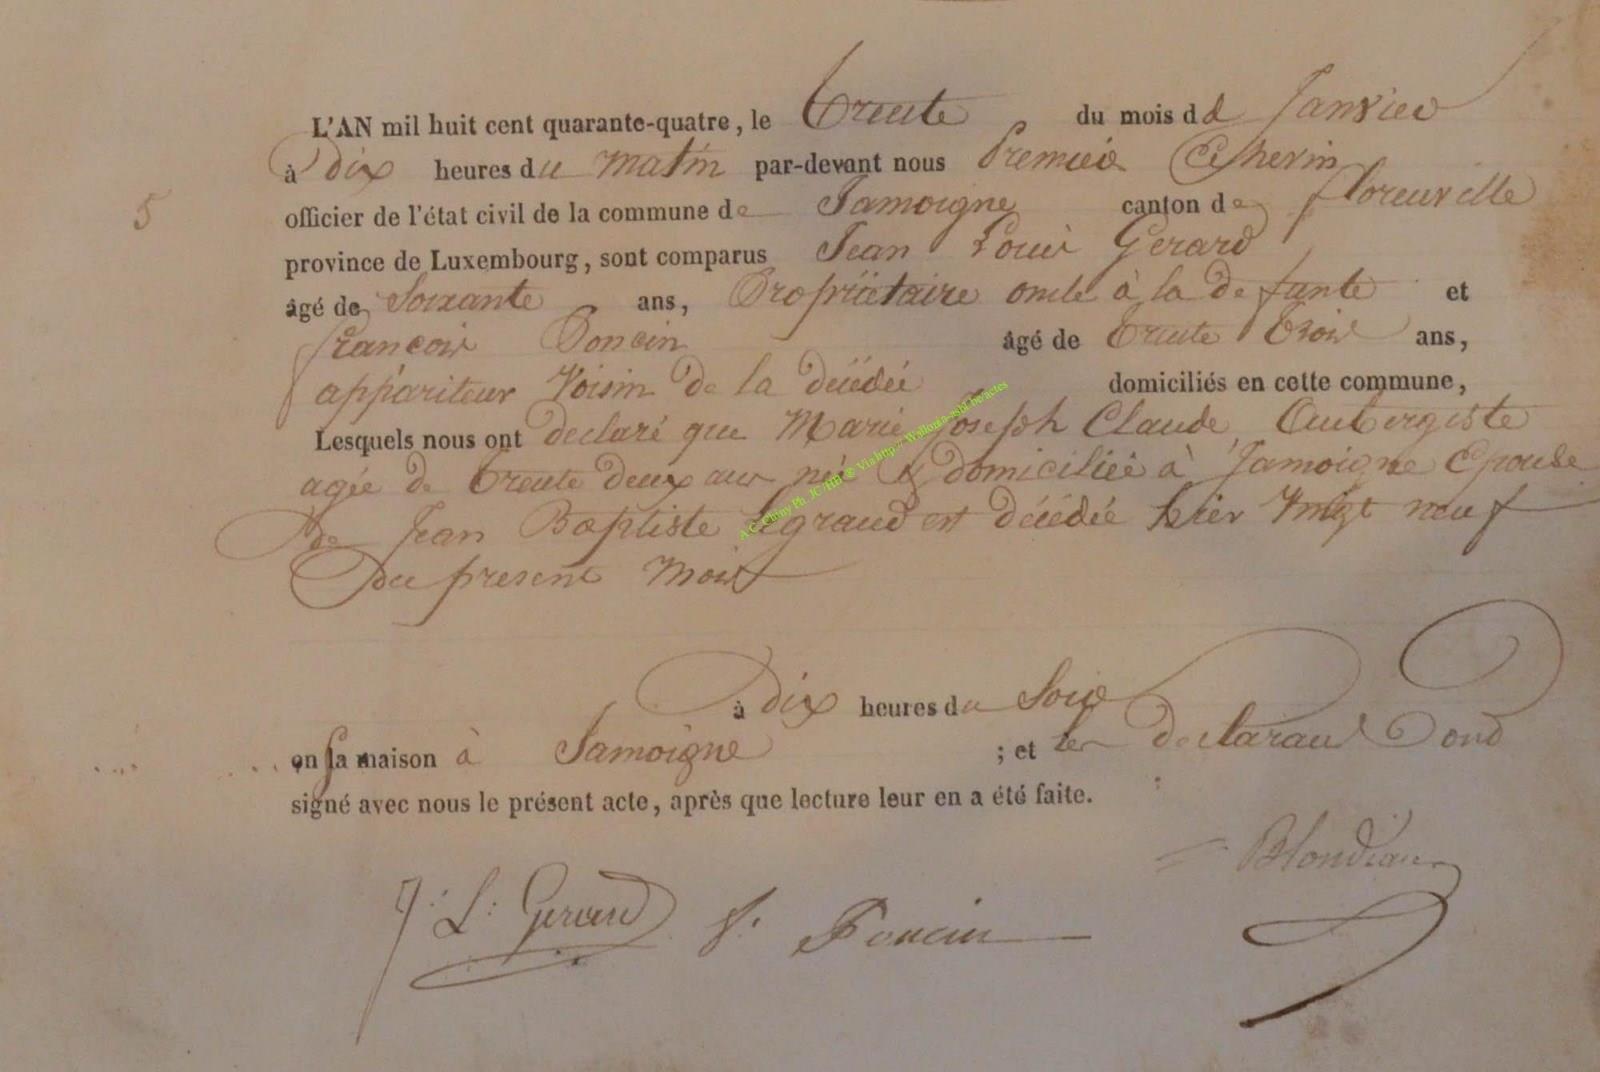 L'AN mil huit cent quarante-quatre, le trente du mois de Janvier
à Dix heures du matin par-devant nous Premier Echevin
5
officier de l'état civil de la commune de Jamoigne canton de florenville
province de Luxembourg, sont comparus Jean Louis Gerard
âgé de Soixante ans, Propriétaire oncle à la defunte et
francois Poncin âgé de trente trois ans,
appariteur Voisin de la décédée domiciliés en cette commune,
Lesquels nous ont declaré que Marie Joseph Claude, Aubergiste
agée de trente deux ans née & domiciliée à Jamoigne Epouse
de Jean Baptiste Legrand est décédée hier Vingt neuf
du present Mois
à Dix heures du Soir
en sa maison à Jamoigne ; et les declarans ond
signé avec nous le présent acte, après que lecture leur en a été faite.
Blondiau
J: L: Gerard f. Poncin
A.C. Chiny Ph. JC/HB ® Via http:// Wallonia-asbl.be/actes